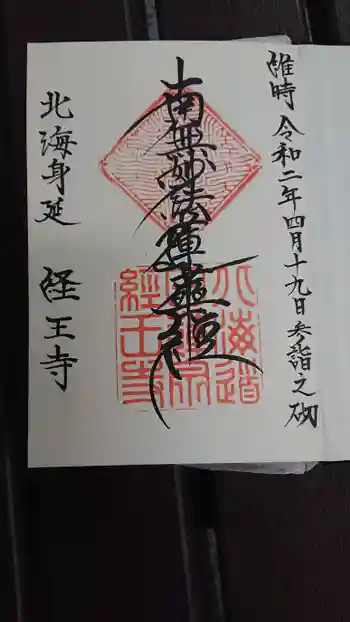 維時 令和二年四月十九日参詣之砌
南無妙法蓮華経
北海身延 経王寺
北海道
経王寺